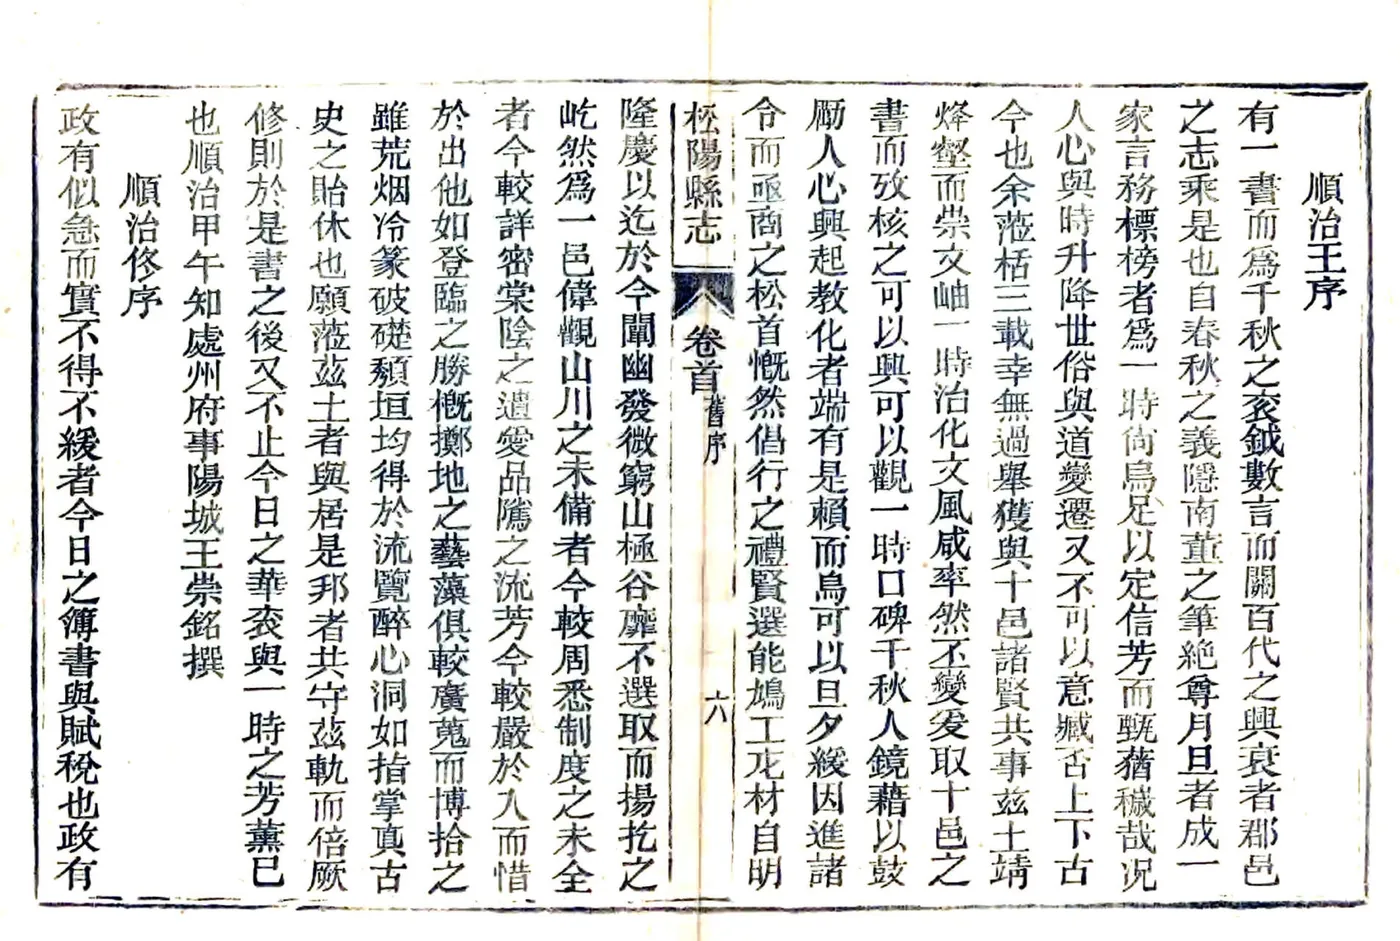 順治王序
有一書而爲千秋之衮鉞數言而關百代之興衰者郡邑
之志乘是也自春秋之義隱南董之筆絶尊月旦者成一
家言務標榜者爲一時尙烏足以定信芳而甄蕕穢哉况
人心與時升降世俗與道變遷又不可以意臧否上下古
今也余蒞栝三載幸無過舉獲與十邑諸賢共事兹土靖
烽壑而崇文岫一時治化文風咸率然丕變爰取十邑之
書而攷核之可以興可以觀一時口碑千秋人鏡藉以鼓
勵人心興起教化者端有是賴而烏可以旦夕緩因進諸
令而亟商之松首慨然倡行之禮賢選能鳩工庀材自明
松陽縣志
卷首
舊序
六
隆慶以迄於今闡幽發微窮山極谷靡不選取而揚扢之
屹然爲一邑偉觀山川之未備者今較周悉制度之未全
者今較詳密棠陰之遺愛品隲之流芳今較嚴於入而惜
於出他如登臨之勝槪擲地之藝藻俱較廣蒐而博拾之
雖荒烟冷篆破礎頽垣均得於流覽醉心洞如指掌眞古
史之貽休也願蒞兹土者與居是邦者共守兹軌而倍厥
修則於是書之後又不止今日之華衮與一時之芳薰已
也順治甲午知處州府事陽城王崇銘撰
順治佟序
政有似急而實不得不緩者今日之簿書與賦稅也政有